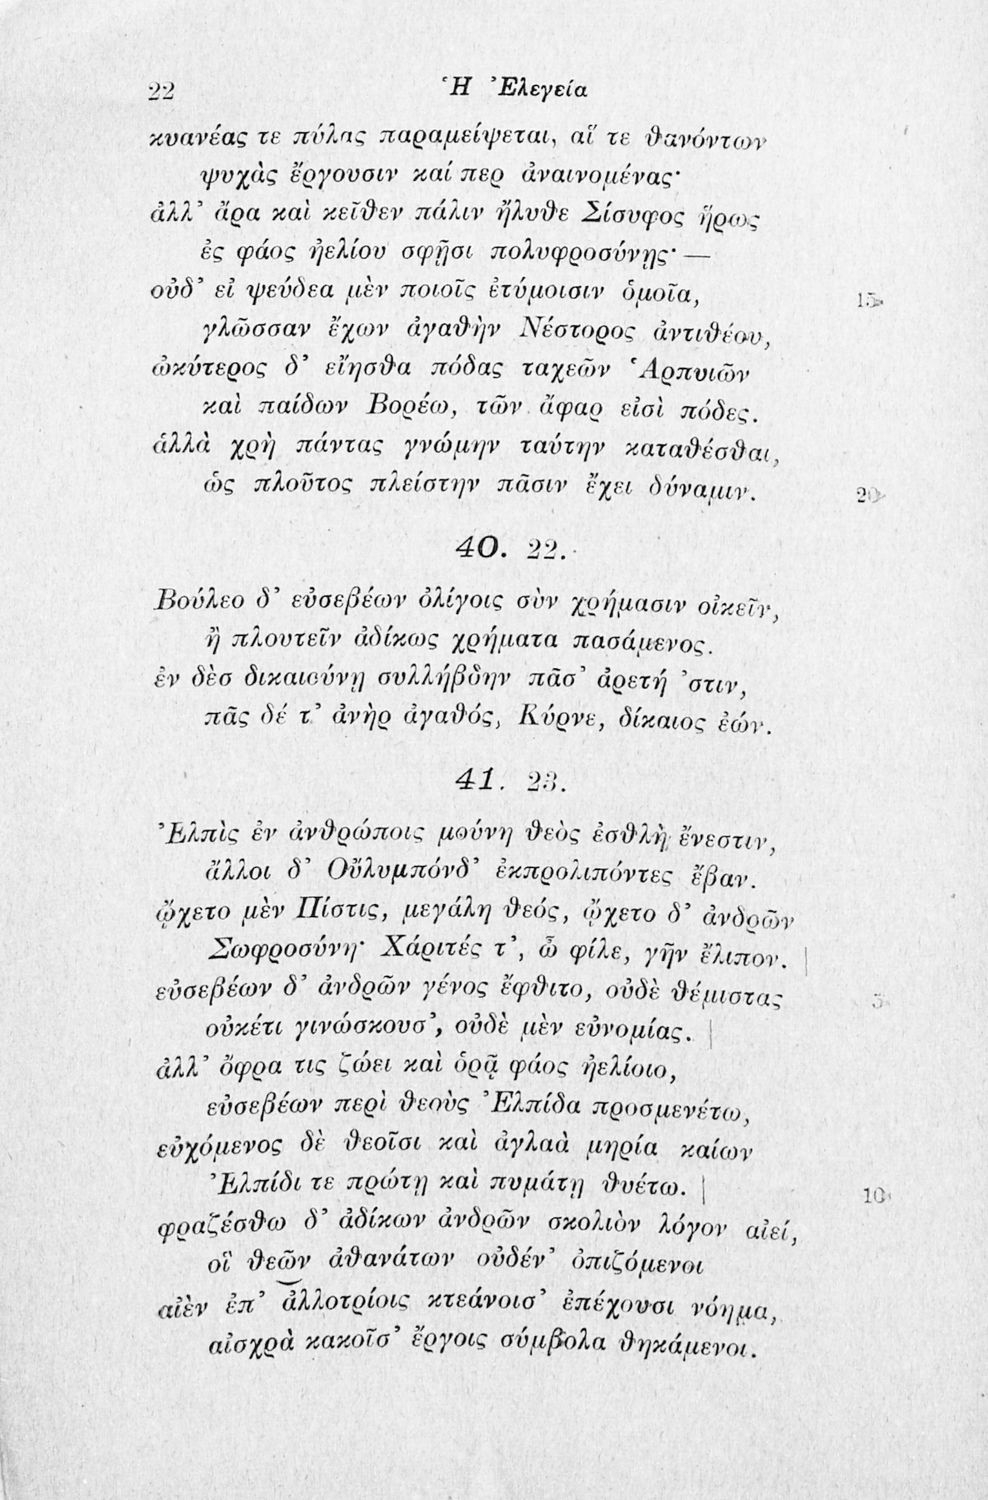 22 Ἡ Ἐλεγεία
κυανέας τε πύλας παραμείψεται, αἵ τε θανόντων
ψυχὰς ἔργουσιν καί περ ἀναινομένας·
ἀλλ’ ἄρα καὶ κεῖθεν πάλιν ἤλυθε Σίσυφος ἥρως
ἐς φάος ἠελίου σφῇσι πολυφροσύνῃς· —
οὐδ’ εἰ ψεύδεα μὲν ποιοῖς ἐτύμοισιν ὁμοῖα, 15
γλῶσσαν ἔχων ἀγαθὴν Νέστορος ἀντιθέου,
ὠκύτερος δ’ εἴησθα πόδας ταχεῶν Ἁρπυιῶν
καὶ παίδων Βορέω, τῶν ἄφαρ εἰσὶ πόδες.
ἀλλὰ χρὴ πάντας γνώμην ταύτην καταθέσθαι,
ὡς πλοῦτος πλείστην πᾶσιν ἔχει δύναμιν. 20
40. 22.
Βούλεο δ’ εὐσεβέων ὀλίγοις σὺν χρήμασιν οἰκεῖν,
ἢ πλουτεῖν ἀδίκως χρήματα πασάμενος.
ἐν δὲσ δικαιοσύνῃ συλλήβδην πᾶσ’ ἀρετή ’στιν,
πᾶς δέ τ’ ἀνὴρ ἀγαθός, Κύρνε, δίκαιος ἐών.
41. 23.
Ἐλπὶς ἐν ἀνθρώποις μούνη θεὸς ἐσθλὴ ἔνεστιν,
ἄλλοι δ’ Οὔλυμπόνδ’ ἐκπρολιπόντες ἔβαν.
ᾤχετο μὲν Πίστις, μεγάλη θεός, ᾤχετο δ’ ἀνδρῶν
Σωφροσύνη· Χάριτές τ’, ὦ φίλε, γῆν ἔλιπον.
εὐσεβέων δ’ ἀνδρῶν γένος ἔφθιτο, οὐδὲ θέμιστας 5
οὐκέτι γινώσκουσ’, οὐδὲ μὲν εὐνομίας.
ἀλλ’ ὄφρα τις ζώει καὶ ὁρᾷ φάος ἠελίοιο,
εὐσεβέων περὶ θεοὺς Ἐλπίδα προσμενέτω,
εὐχόμενος δὲ θεοῖσι καὶ ἀγλαὰ μηρία καίων
Ἐλπίδι τε πρώτῃ καὶ πυμάτῃ θυέτω. 10
φραζέσθω δ’ ἀδίκων ἀνδρῶν σκολιὸν λόγον αἰεί,
οἳ θεῶν ἀθανάτων οὐδέν’ ὀπιζόμενοι
αἰὲν ἐπ’ ἀλλοτρίοις κτεάνοισ’ ἐπέχουσι νόημα,
αἰσχρὰ κακοῖσ’ ἔργοις σύμβολα θηκάμενοι.